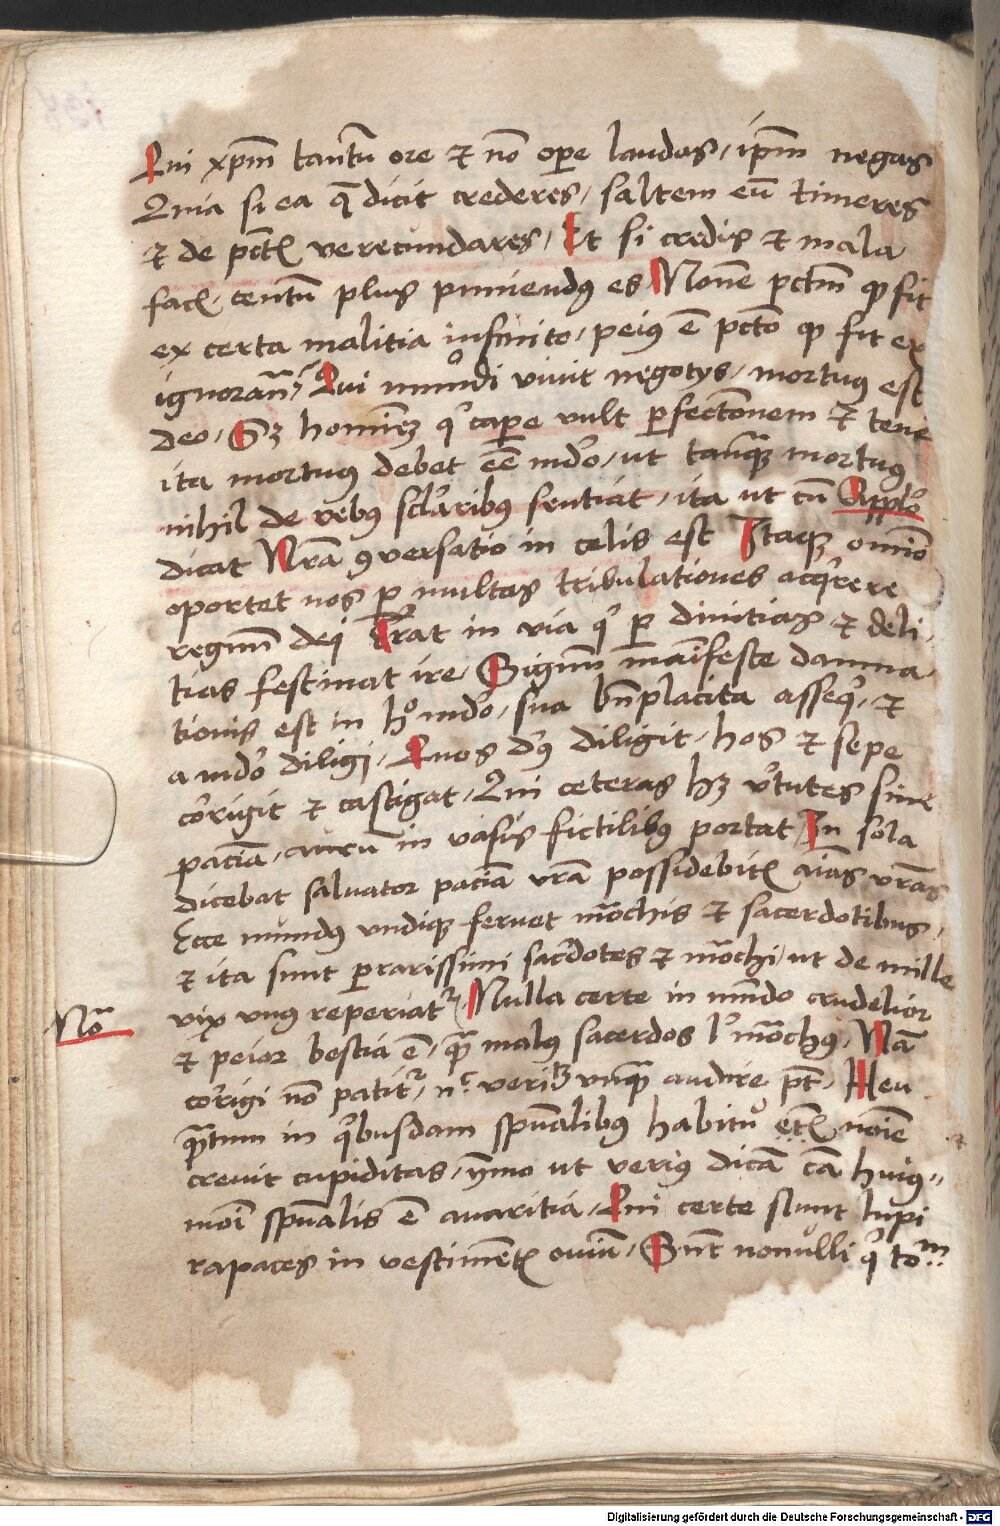 Qui xp̄m tantū ore et nō ope laudas, ip̄m negas
Quia si ea q̄ dicit crederes, saltem eū timeres
et de pctꝭ verecundares, Et si credis et mala
facꝭ, centū plus puniendꝰ es Nonne pctm̄ qꝫ fit
ex certa malitia infinito, peiꝰ ē pctō qꝫ fit ex
ignorann̄, Qui mundi vivit negotys, mortuꝰ est
deo, Sꝫ hominē qͥ cape vult ꝑfectōnem et tene
ita mortuꝰ debet eē mdo, ut tanqꝫ mortuꝰ
nihil de rebꝰ sclaribus sentiat, ita ut cū Applo
dicat Nrā ꝯversatio in celis est Itaqꝫ omīo
oportet nos ꝑ multas tribulationes acqͥrere
regnum dei Errat in via qͥ ꝑ divitias et deli,
tias festinat ire, Signum manifeste damna,
tionis est in hͦ mdo, sua bn̄placita asseqͥ, et
a mdo diligi, Quos dꝰ diligit, hos et sepe
corrigit et castigat, Qui ceteras hꝫ vtutes sine
paciā, aurū in vasis fictilibꝰ portat, In sola
dicebat salvator paciā vrā possidebitꝭ aīas vrās
Ecce mundꝰ undiqꝫ fervet mōchis et sacerdotibus,
et ita sunt ꝑrarissimi sacdotes et mōchi, ut de mille
vix unꝰ reperiatᷣ, Nulla certe in mundo crudelior
Nō
et peior bestia ē, qᷓ malꝰ sacerdos lͦ mōchꝰ, Nā
corrigi nō patitᷣ, nͨ veritꝫ unqᷓ audire pt̄, Heu
qᷓtum in qͥbusdam spūalibus habitu etꝭ noīe
crevit cupiditas, ymo ut veriꝰ dicā cā huiꝰ,,
moī spūalis ē avaritia, Qui certe sunt lupi
rapaces in vestimentꝭ oviū, Sunt nonulli qͥ toᵐ
Digitalisierung gefördert durch die Deutsche Forschungsgemeinschaft - DFG